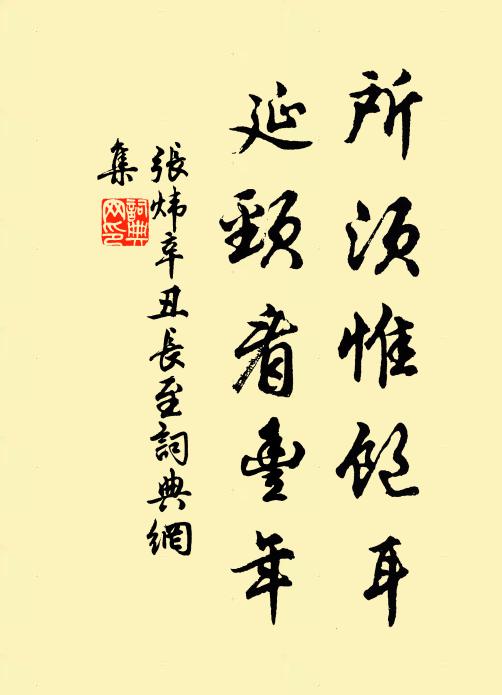 所須惟飽耳
延頸看豐年
張煒辛丑長至詞典網
集
詞典
网印